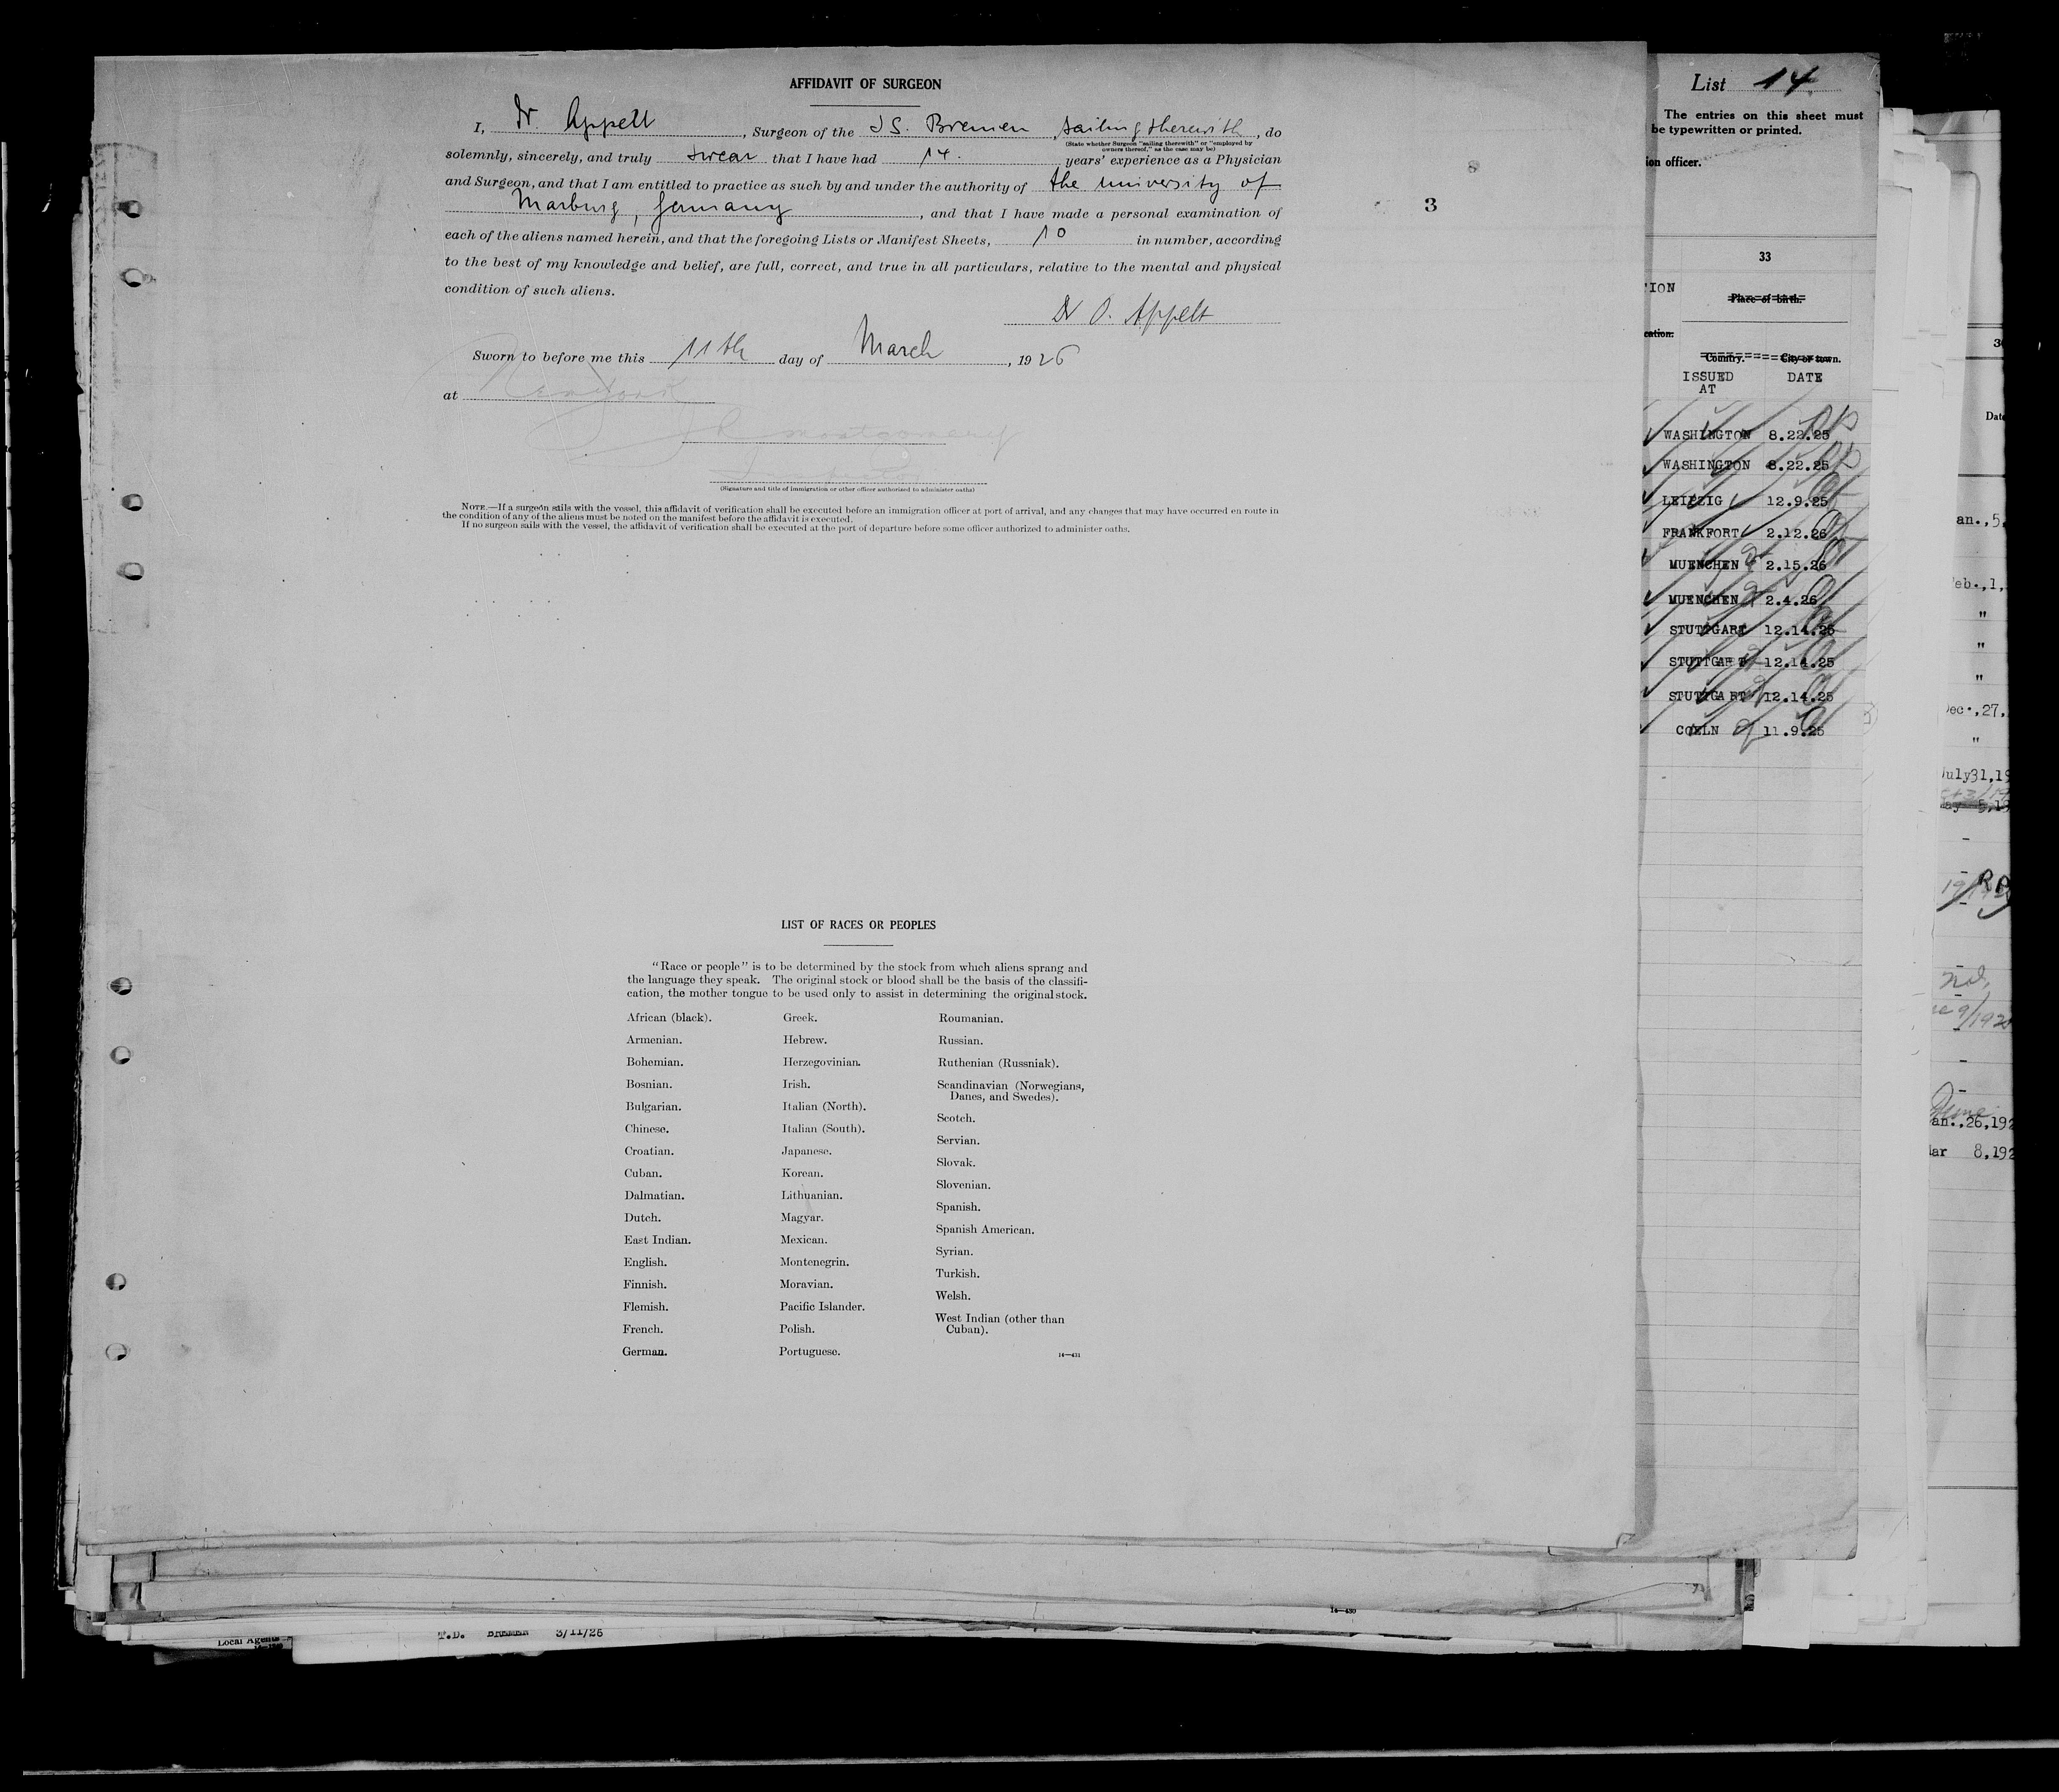 AFFIDAVIT OF SURGEON
I, Dr. Appelt, Surgeon of the SS. Bremen, sailing therewith, do
(State whether Surgeon "sailing therewith" or "employed by
owners thereof," as the case may be)
solemnly, sincerely, and truly swear that I have had 14. years' experience as a Physician
and Surgeon, and that I am entitled to practice as such by and under the authority of the university of
Marburg, Germany, and that I have made a personal examination of
each of the aliens named herein, and that the foregoing Lists or Manifest Sheets, 10 in number, according
to the best of my knowledge and belief, are full, correct, and true in all particulars, relative to the mental and physical
condition of such aliens.
Dr O. Appelt
Sworn to before me this 11th day of March, 1926
at New York
Montgomery
Inspector
(Signature and title of immigration or other officer authorized to administer oaths)
NOTE.—If a surgeon sails with the vessel, this affidavit of verification shall be executed before an immigration officer at port of arrival, and any changes that may have occurred en route in
the condition of any of the aliens must be noted on the manifest before the affidavit is executed.
If no surgeon sails with the vessel, the affidavit of verification shall be executed at the port of departure before some officer authorized to administer oaths.
3
LIST OF RACES OR PEOPLES
"Race or people" is to be determined by the stock from which aliens sprang and
the language they speak. The original stock or blood shall be the basis of the classifi-
cation, the mother tongue to be used only to assist in determining the original stock.
African (black).
Armenian.
Bohemian.
Bosnian.
Bulgarian.
Chinese.
Croatian.
Cuban.
Dalmatian.
Dutch.
East Indian.
English.
Finnish.
Flemish.
French.
German.
Greek.
Hebrew.
Herzegovinian.
Irish.
Italian (North).
Italian (South).
Japanese.
Korean.
Lithuanian.
Magyar.
Mexican.
Montenegrin.
Moravian.
Pacific Islander.
Polish.
Portuguese.
Roumanian.
Russian.
Ruthenian (Russniak).
Scandinavian (Norwegians,
Danes, and Swedes).
Scotch.
Servian.
Slovak.
Slovenian.
Spanish.
Spanish American.
Syrian.
Turkish.
Welsh.
West Indian (other than
Cuban).
14—431
List 14
The entries on this sheet must
be typewritten or printed.
ion officer.
33
TION
Place of birth.
cation.
Country. City or town.
ISSUED AT DATE
WASHINGTON 8.22.25
WASHINGTON 8.22.25
LEIPZIG 12.9.25
FRANKFORT 2.12.26
MUENCHEN 2.15.26
MUENCHEN 2.4.26
STUTTGART 12.14.25
STUTTGART 12.14.25
STUTTGART 12.14.25
COELN 11.9.25
Date
an.,5,
eb.,1,
"
"
"
ec.,27,
"
uly31,19
ay 5,19
an.,26,192
ar 8,192
14—430
Local Agents
T.D. BREMEN 3/11/26